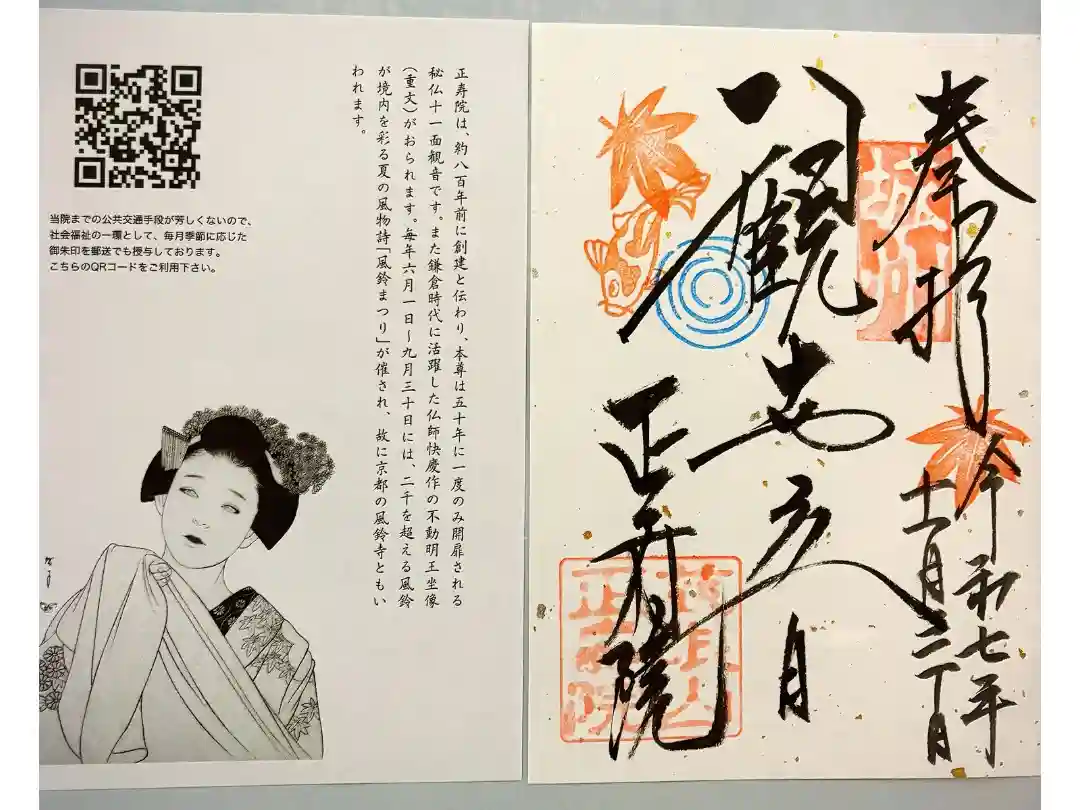 当院までの公共交通手段が芳しくないので、
社会福祉の一環として、毎月季節に応じた
御朱印を郵送でも授与しております。
こちらのQRコードをご利用下さい。
正寿院は、約八百年前に創建と伝わり、本尊は五十年に一度のみ開扉される
秘仏十一面観音です。また鎌倉時代に活躍した仏師快慶作の不動明王坐像
（重文）がおられます。毎年六月一日～九月三十日には、二千を超える風鈴
が境内を彩る夏の風物詩「風鈴まつり」が催され、故に京都の風鈴寺ともい
われます。
奉拝
令和七年
正寿院